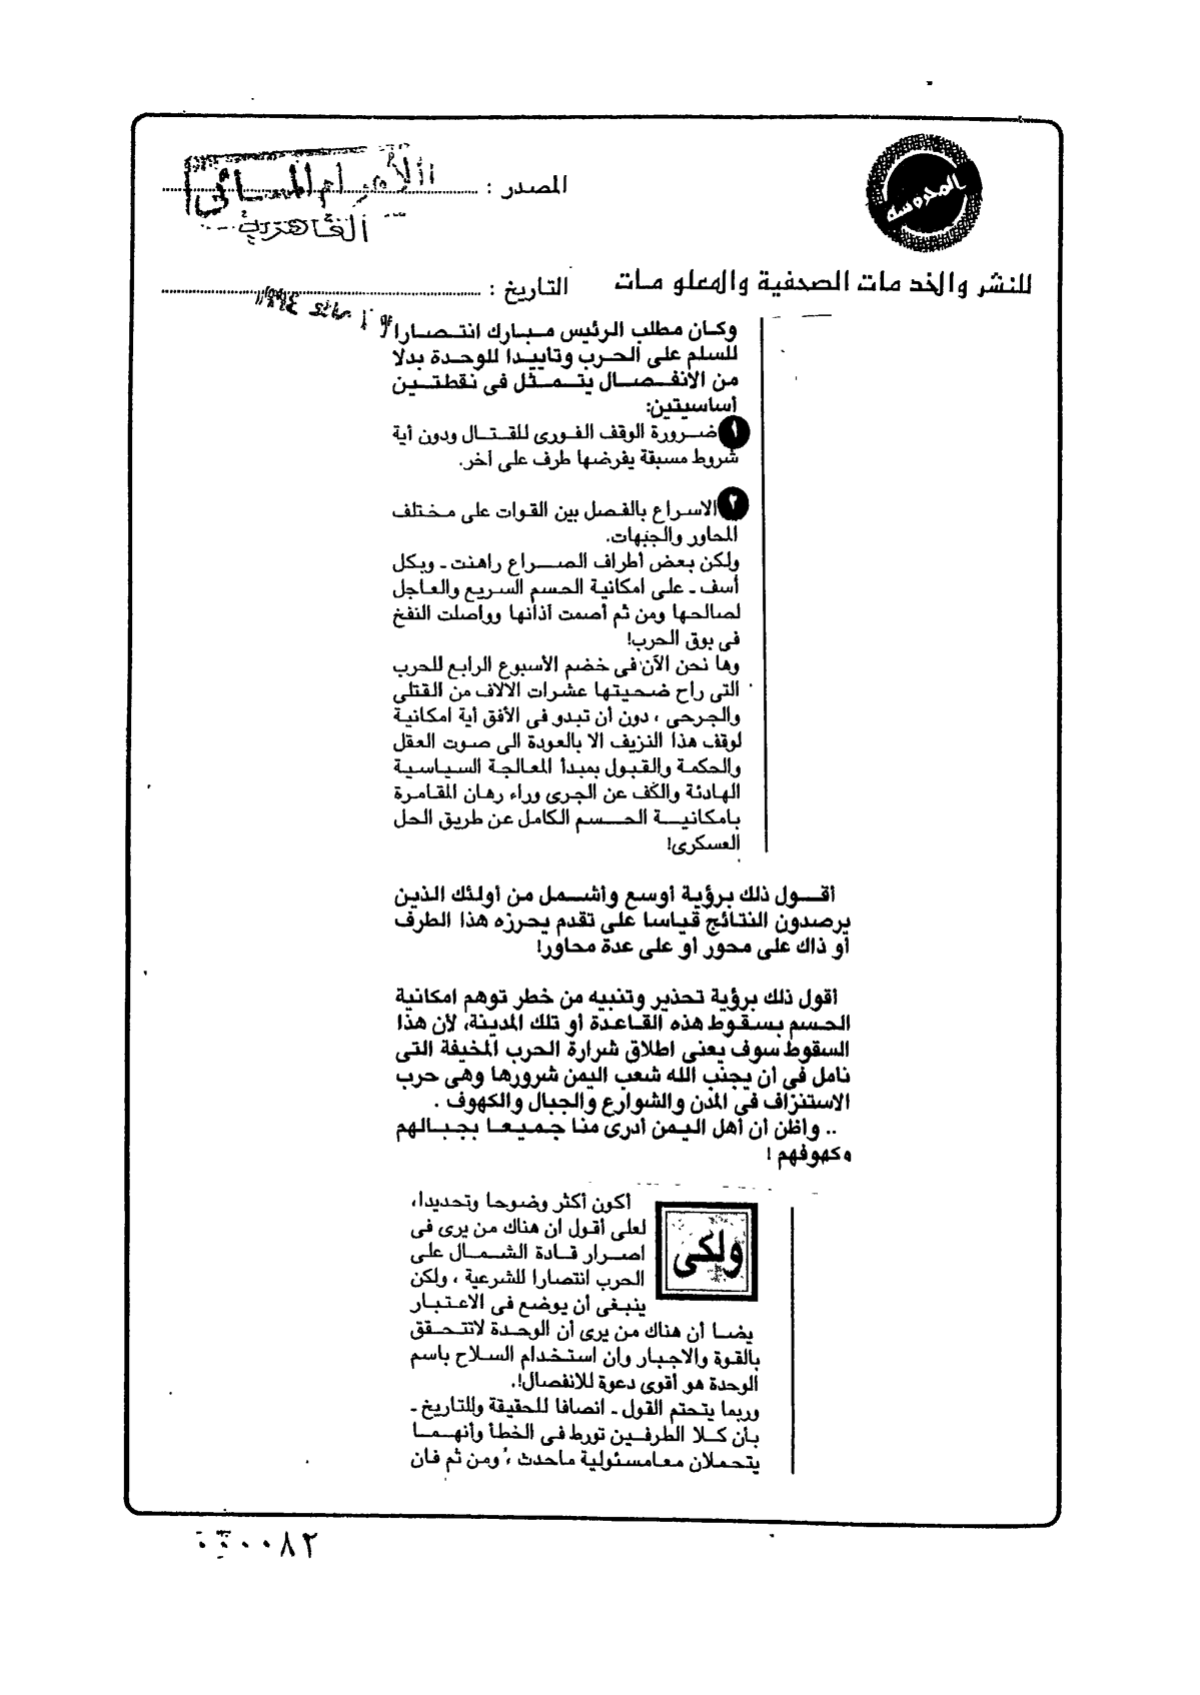 المحروسة
المصدر :
الأهرام المسائى
القاهرية
للنشر والخدمات الصحفية والمعلومات
التاريخ :
مايو ١٩٩٤
وكان مطلب الرئيس مبارك انتصارا
للسلم على الحرب وتاييدا للوحدة بدلا
من الانفصال يتمثل فى نقطتين
أساسيتين:
١ ضرورة الوقف الفورى للقتال ودون أية
شروط مسبقة يفرضها طرف على آخر.
٢ الاسراع بالفصل بين القوات على مختلف
المحاور والجبهات.
ولكن بعض أطراف الصراع راهنت ـ وبكل
أسف ـ على امكانية الحسم السريع والعاجل
لصالحها ومن ثم أصمت آذانها وواصلت النفخ
فى بوق الحرب!
وها نحن الآن فى خضم الأسبوع الرابع للحرب
التى راح ضحيتها عشرات الالاف من القتلى
والجرحى ، دون أن تبدو فى الأفق أية امكانية
لوقف هذا النزيف الا بالعودة الى صوت العقل
والحكمة والقبول بمبدأ المعالجة السياسية
الهادئة والكف عن الجرى وراء رهان المقامرة
بامكانية الحسم الكامل عن طريق الحل
العسكرى!
أقول ذلك برؤية أوسع وأشمل من أولئك الذين
يرصدون النتائج قياسا على تقدم يحرزه هذا الطرف
أو ذاك على محور أو على عدة محاور!
أقول ذلك برؤية تحذير وتنبيه من خطر توهم امكانية
الحسم بسقوط هذه القاعدة أو تلك المدينة، لأن هذا
السقوط سوف يعنى اطلاق شرارة الحرب المخيفة التى
نامل فى أن يجنب الله شعب اليمن شرورها وهى حرب
الاستنزاف فى المدن والشوارع والجبال والكهوف .
.. واظن أن أهل اليمن أدرى منا جميعا بجبالهم
وكهوفهم !
ولكى
أكون أكثر وضوحا وتحديدا،
لعلى أقول ان هناك من يرى فى
اصرار قادة الشمال على
الحرب انتصارا للشرعية ، ولكن
ينبغى أن يوضع فى الاعتبار
يضا أن هناك من يرى أن الوحدة لاتتحقق
بالقوة والاجبار وان استخدام السلاح باسم
الوحدة هو أقوى دعوة للانفصال!.
وربما يتحتم القول ـ انصافا للحقيقة وللتاريخ ـ
بأن كلا الطرفين تورط فى الخطأ وأنهما
يتحملان معا مسئولية ماحدث ، ومن ثم فان
٠٠٠٠٨٢